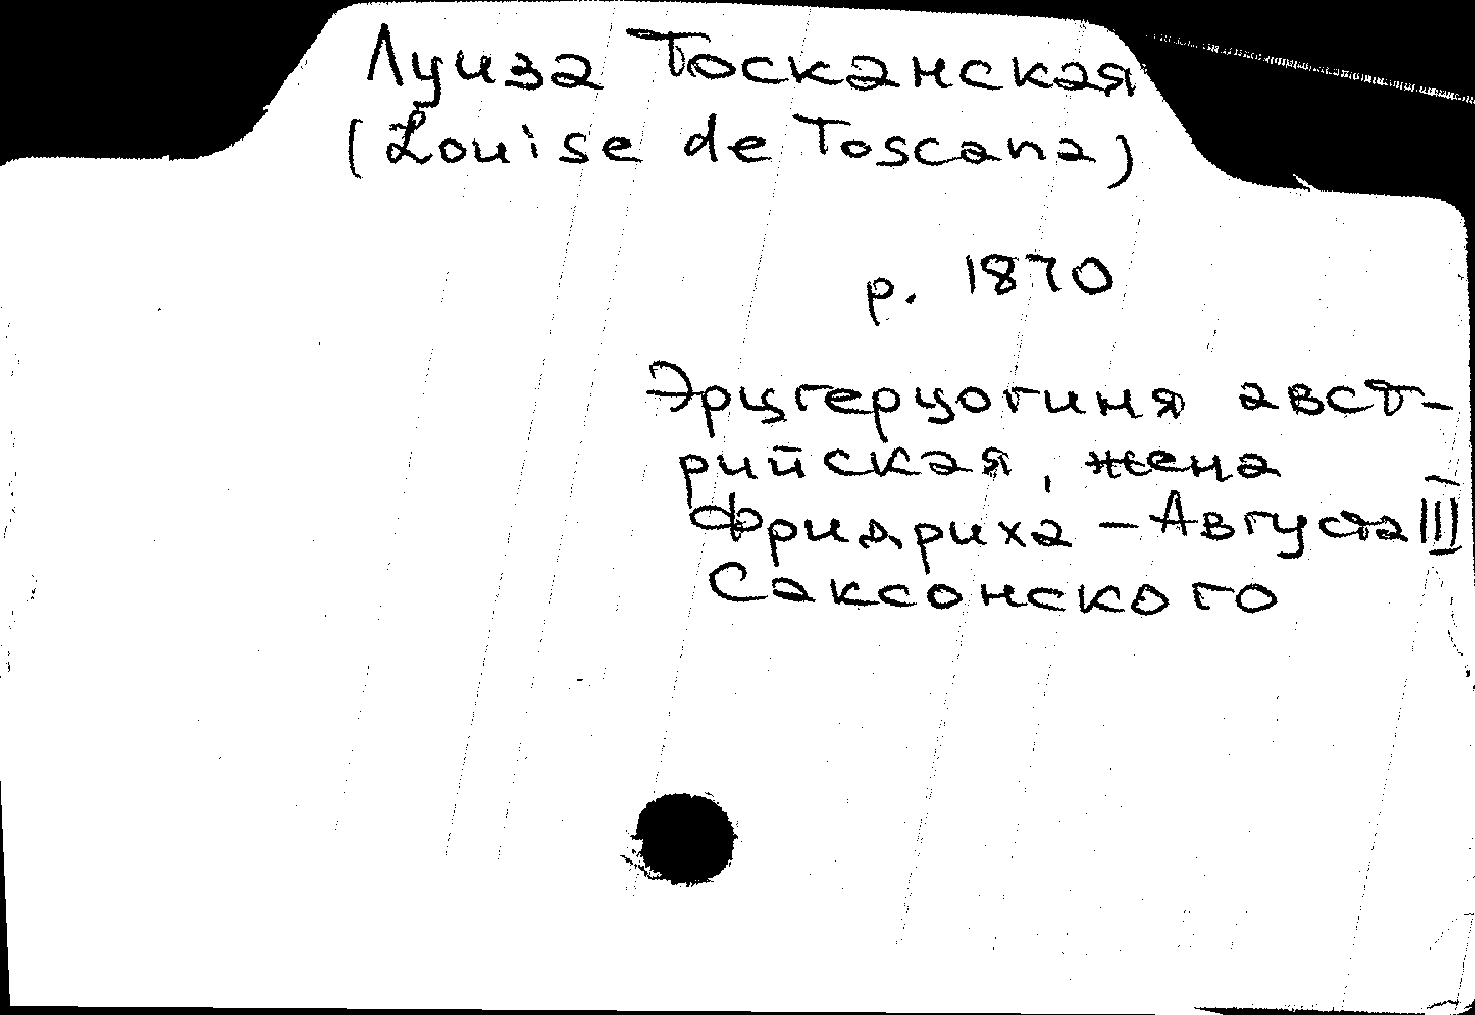 Луиза Тосканская
(Louise de Toscana)
р. 1870
Эрцгерцогиня авст-
рийская, жена
Фридриха - Августа III
Саксонского